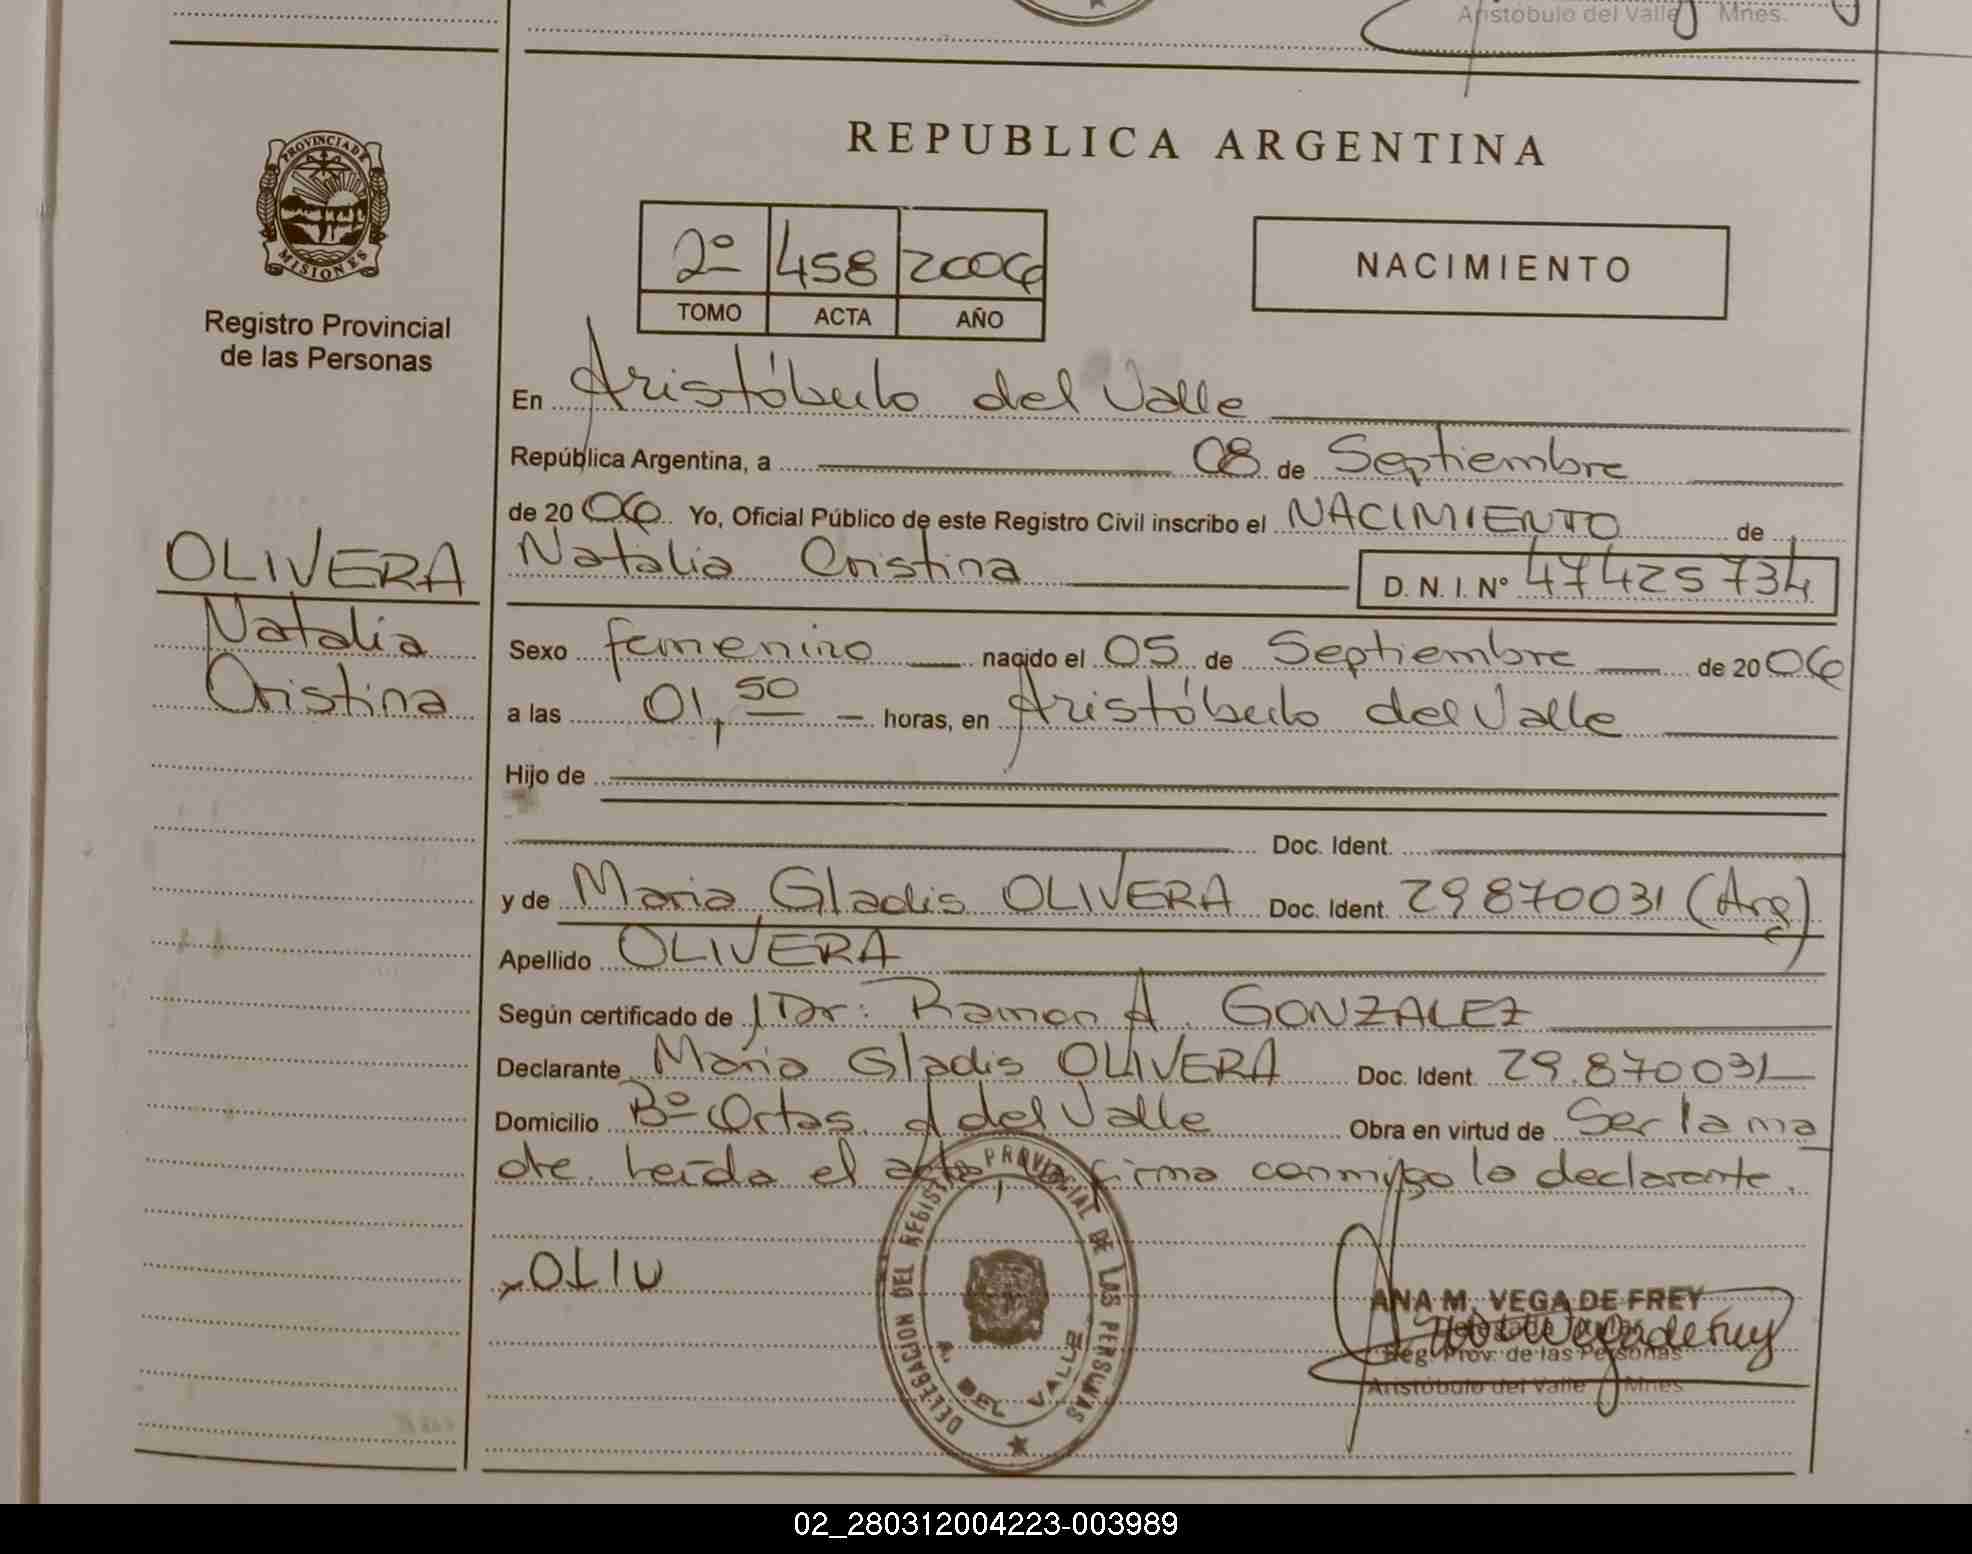 Aristóbulo del Valle Mnes.
REPUBLICA ARGENTINA
PROVINCIA DE
MISIONES
Registro Provincial
de las Personas
2º 458 2006
TOMO ACTA AÑO
NACIMIENTO
En Aristóbulo del Valle
República Argentina, a 08 de Septiembre
de 2006 Yo, Oficial Público de este Registro Civil inscribo el NACIMIENTO de
Natalia Cristina D. N. I. Nº 47425734
OLIVERA
Natalia
Cristina
Sexo femenino nacido el 05 de Septiembre de 2006
a las 01,50 horas, en Aristóbulo del Valle
Hijo de
Doc. Ident.
y de Maria Gladis OLIVERA Doc. Ident. 29870031 (Arg)
Apellido OLIVERA
Según certificado de Dr: Ramon A. GONZALEZ
Declarante Maria Gladis OLIVERA Doc. Ident. 29.870031
Domicilio Bº Ortas. A del Valle Obra en virtud de Ser la ma
dre. Leída el acta, firma conmigo la declarante.
OLIV
DELEGACION DEL REGISTRO PROVINCIAL DE LAS PERSONAS
A. DEL VALLE
ANA M. VEGA DE FREY
Reg. Prov. de las Personas
Aristóbulo del Valle Mnes
02_280312004223-003989